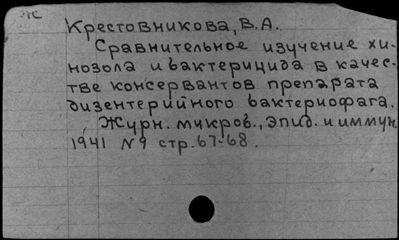 Крестовникова, В.А.
Сравнительное изучение хи-
нозола и бактерицида в качес-
тве консервантов препарата
дизентерийного бактериофага.
Журн. микров., эпид. и иммун.
1941 №9 стр. 67-68.